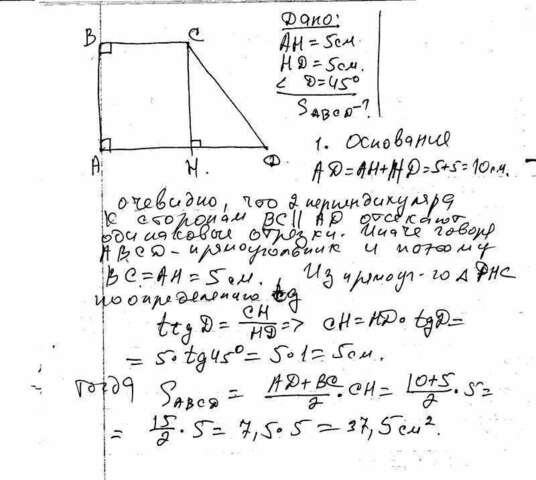 B C
A H. D
Дано:
AH = 5см.
HD = 5см.
< D = 45°
S ABCD - ?
1. Основания
AD = AH + HD = 5 + 5 = 10 см.
очевидно, что 2 перпендикуляра
к сторонам BC || AD отсекают
одинаковые отрезки. Иначе говоря
ABCD - прямоугольник и потому
BC = AH = 5 см. Из прямоуг-го Δ DHC
по определению tg
tg D = CH/HD => CH = HD · tgD =
= 5 · tg45° = 5 · 1 = 5см.
Тогда S ABCD = (AD + BC)/2 · CH = (10 + 5)/2 · 5 =
= 15/2 · 5 = 7,5 · 5 = 37,5 см².